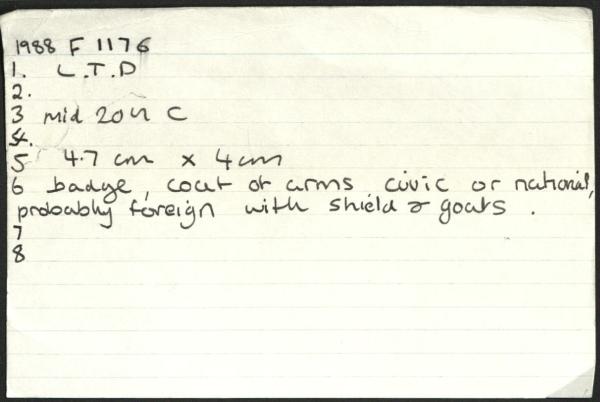 1988 F 1176
1. L.T.D
2.
3 mid 20th C
4.
5 4.7 cm x 4cm
6 badge, coat of arms, civic or national,
probably foreign with shield & goats.
7
8